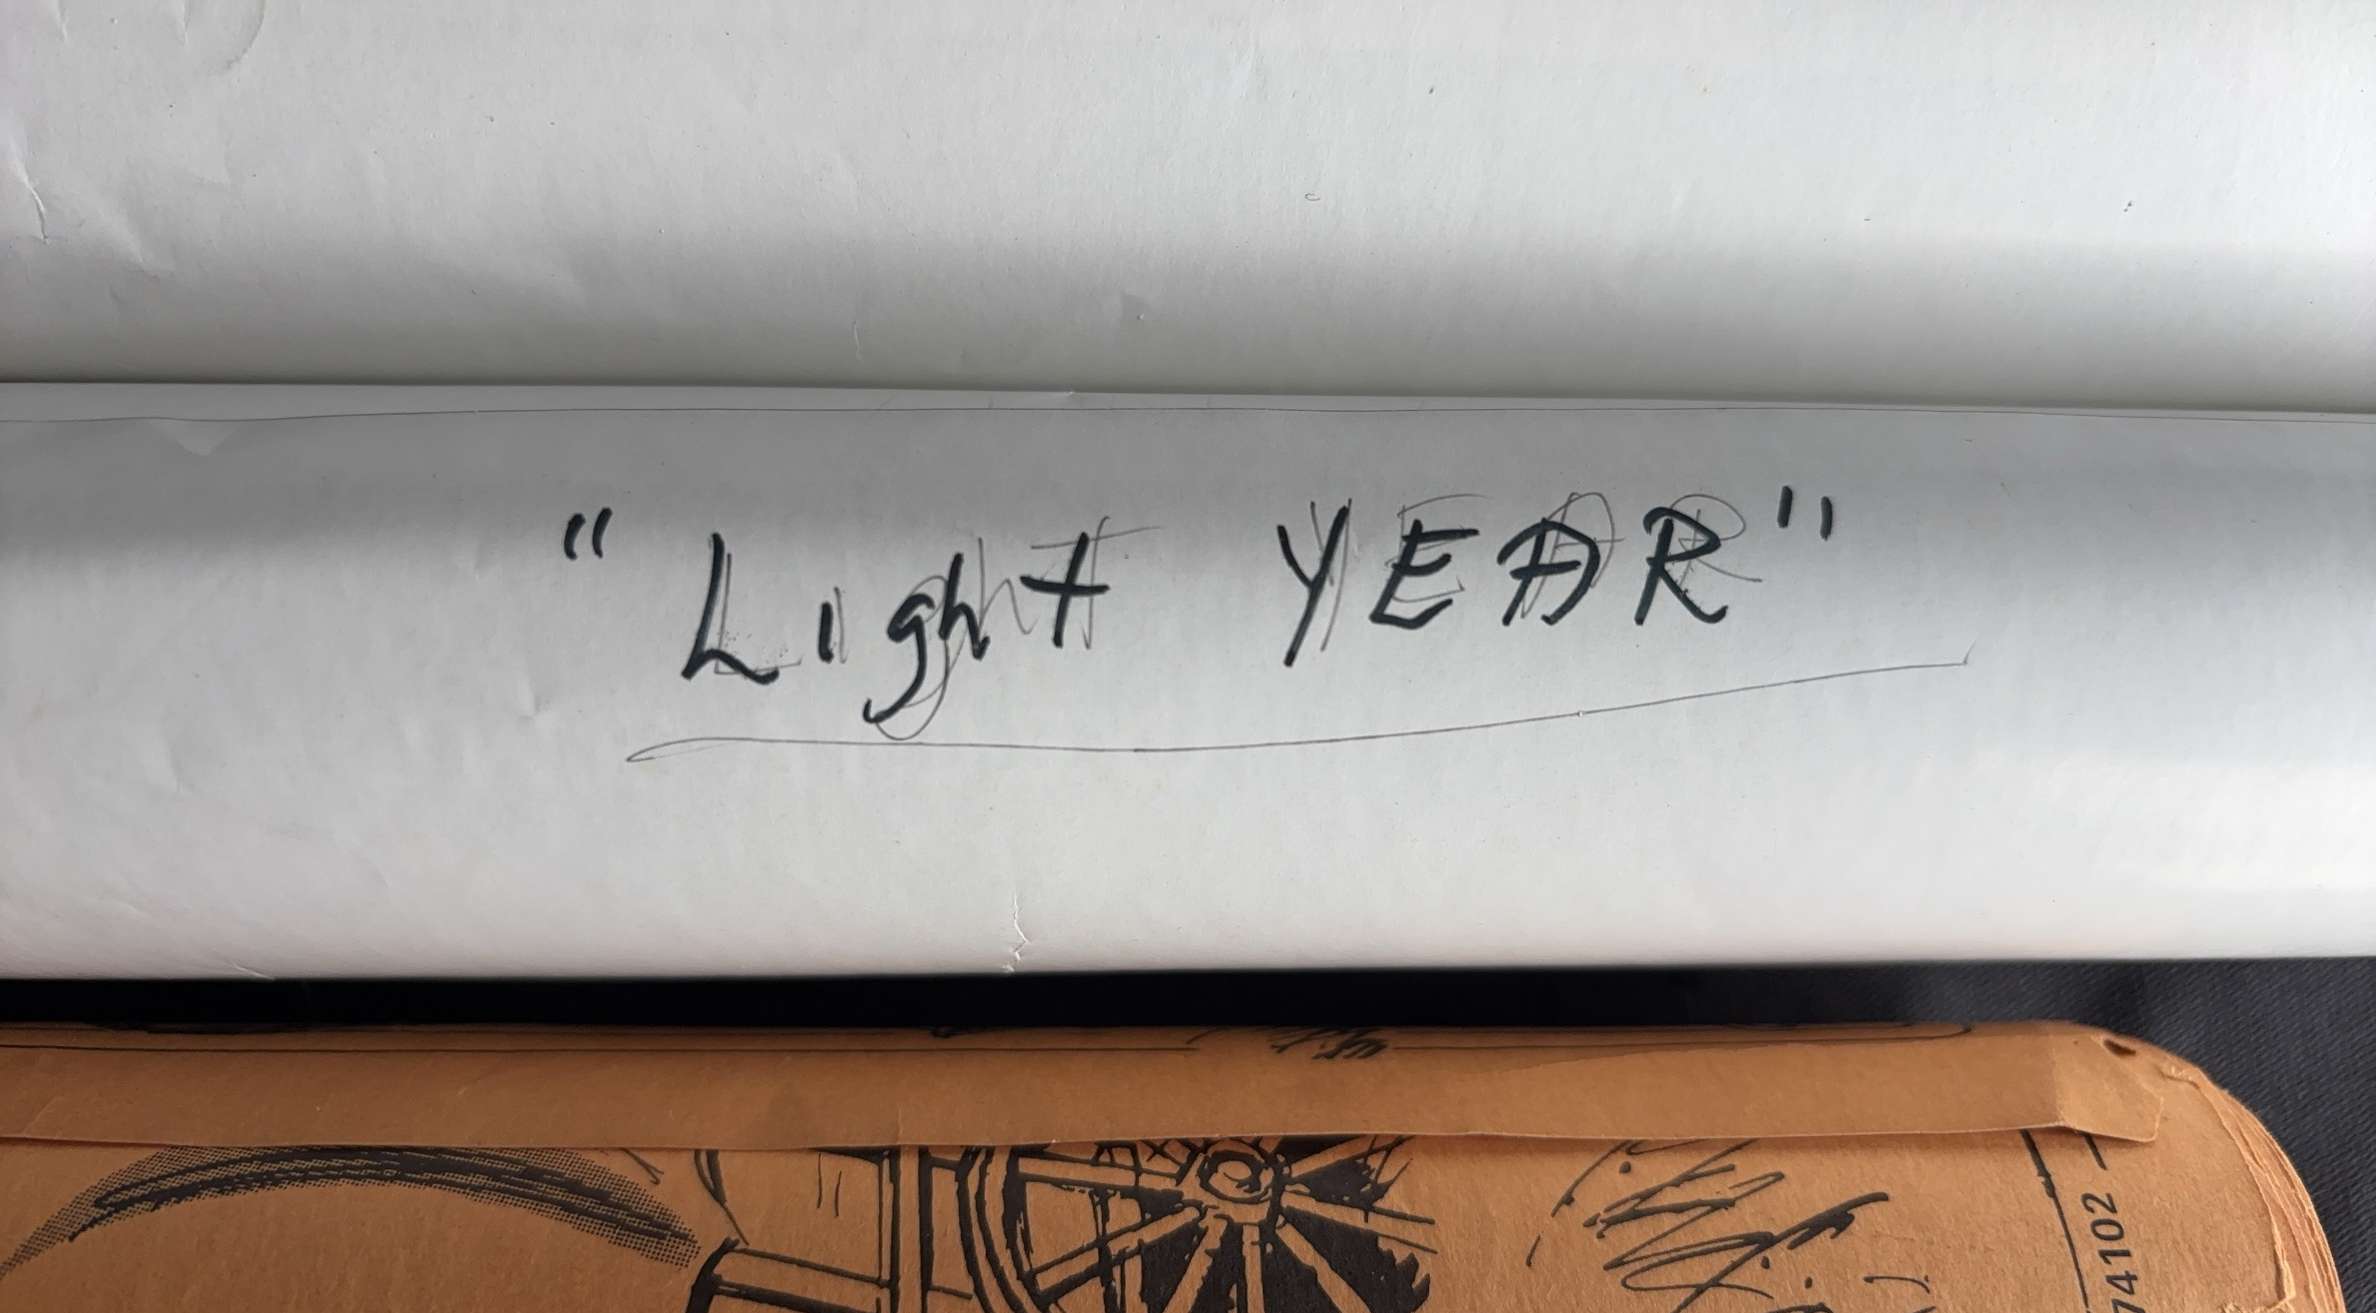 "Light YEAR"
74102